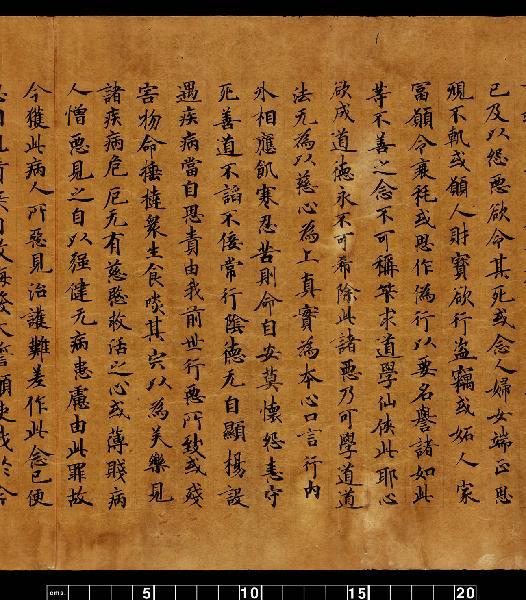 已及以怨惡欲令其死或念人婦女端正思
覩不軌或願人財寳欲行盗竊或妬人家
冨願令衰秏或思作偽行以要名譽諸如此
等不善之念不可稱筭求道學仙俠此耶心
欲成道德永不可希除此諸惡乃可學道道
法无為以慈心為上真實為本心口言行内
外相應飢寒忍苦則命自安莫懐怨恚守
死善道不謟不侫常行陰德无自顯揚設
遇疾病當自思責由我前世行惡所致或殘
害物命棲撻衆生食啖其宍以為美樂見
諸疾病危厄无有慈愍救活之心或薄賤病
人憎惡見之自以强健无病恚慮由此罪故
今獲此病人所惡見治護難差作此念已便